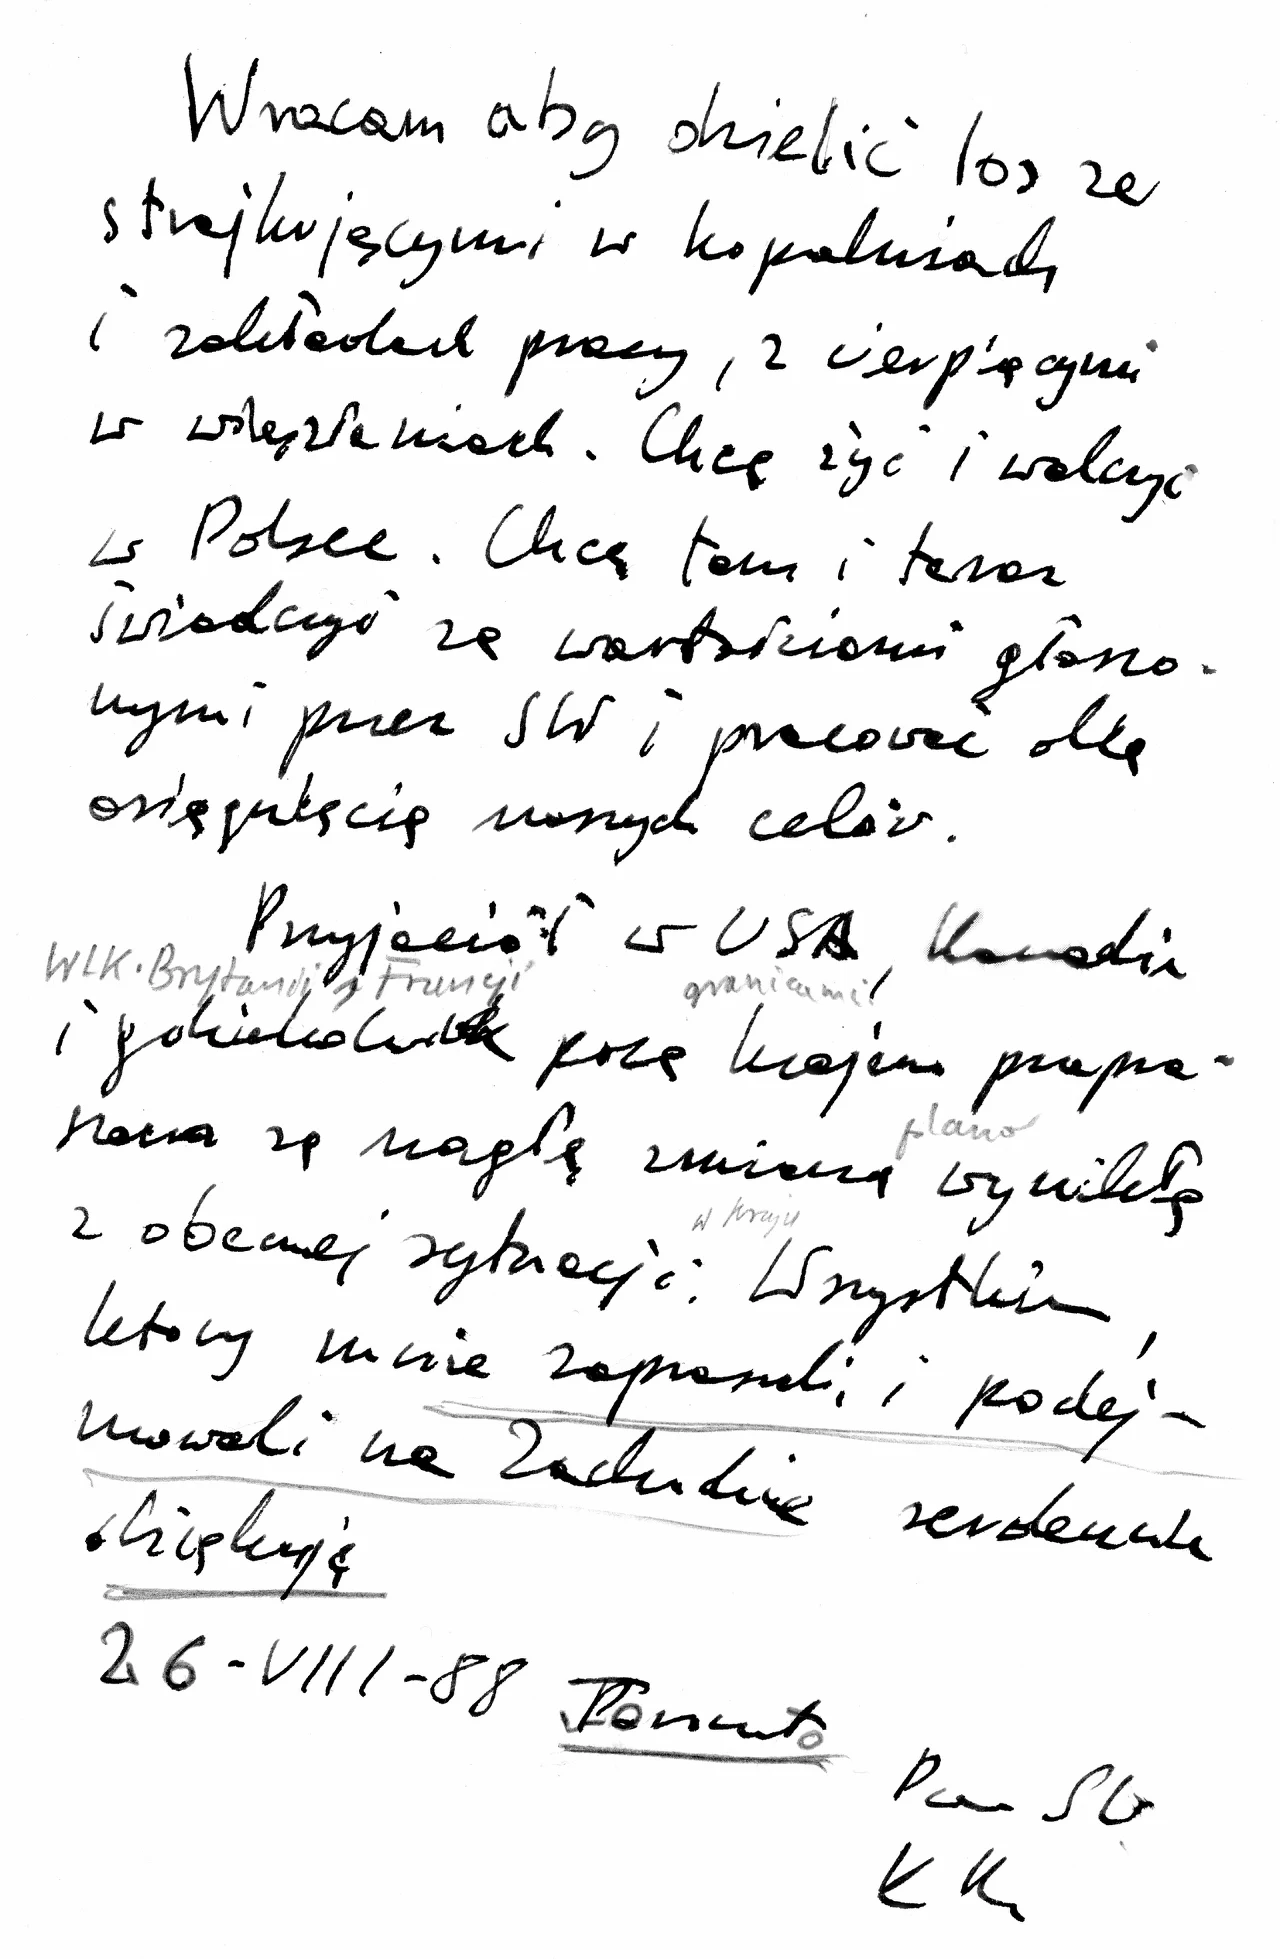 Wracam aby dzielić los ze
strajkującymi w kopalniach
i zakładach pracy, z cierpiącymi
w więzieniach. Chcę żyć i walczyć
w Polsce. Chcę tam i teraz
świadczyć za wartościami głoszo-
nymi przez SW i pracować dla
osiągnięcia naszych celów.
Przyjaciół w USA, Kanadzie
WLK. Brytanii, Francji granicami
i gdziekolwiek poza krajem przepra-
szam za nagłą zmianę wynikłą
planów
z obecnej sytuacji. Wszystkim,
w kraju
którzy mnie zaprosili, i podej-
mowali na Zachodzie serdecznie
dziękuję
26-VIII-88 Toronto
SW
K